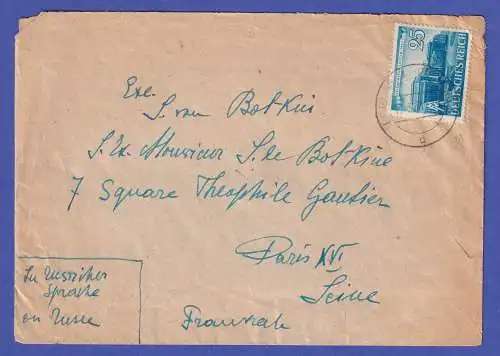 25
DEUTSCHES REICH
Exc.
S. von Botkin
S. Ex. Monsieur S. de Botkine
7 Square Théophile Gautier
Paris XVI
Seine
In russischer
Sprache
en Russe